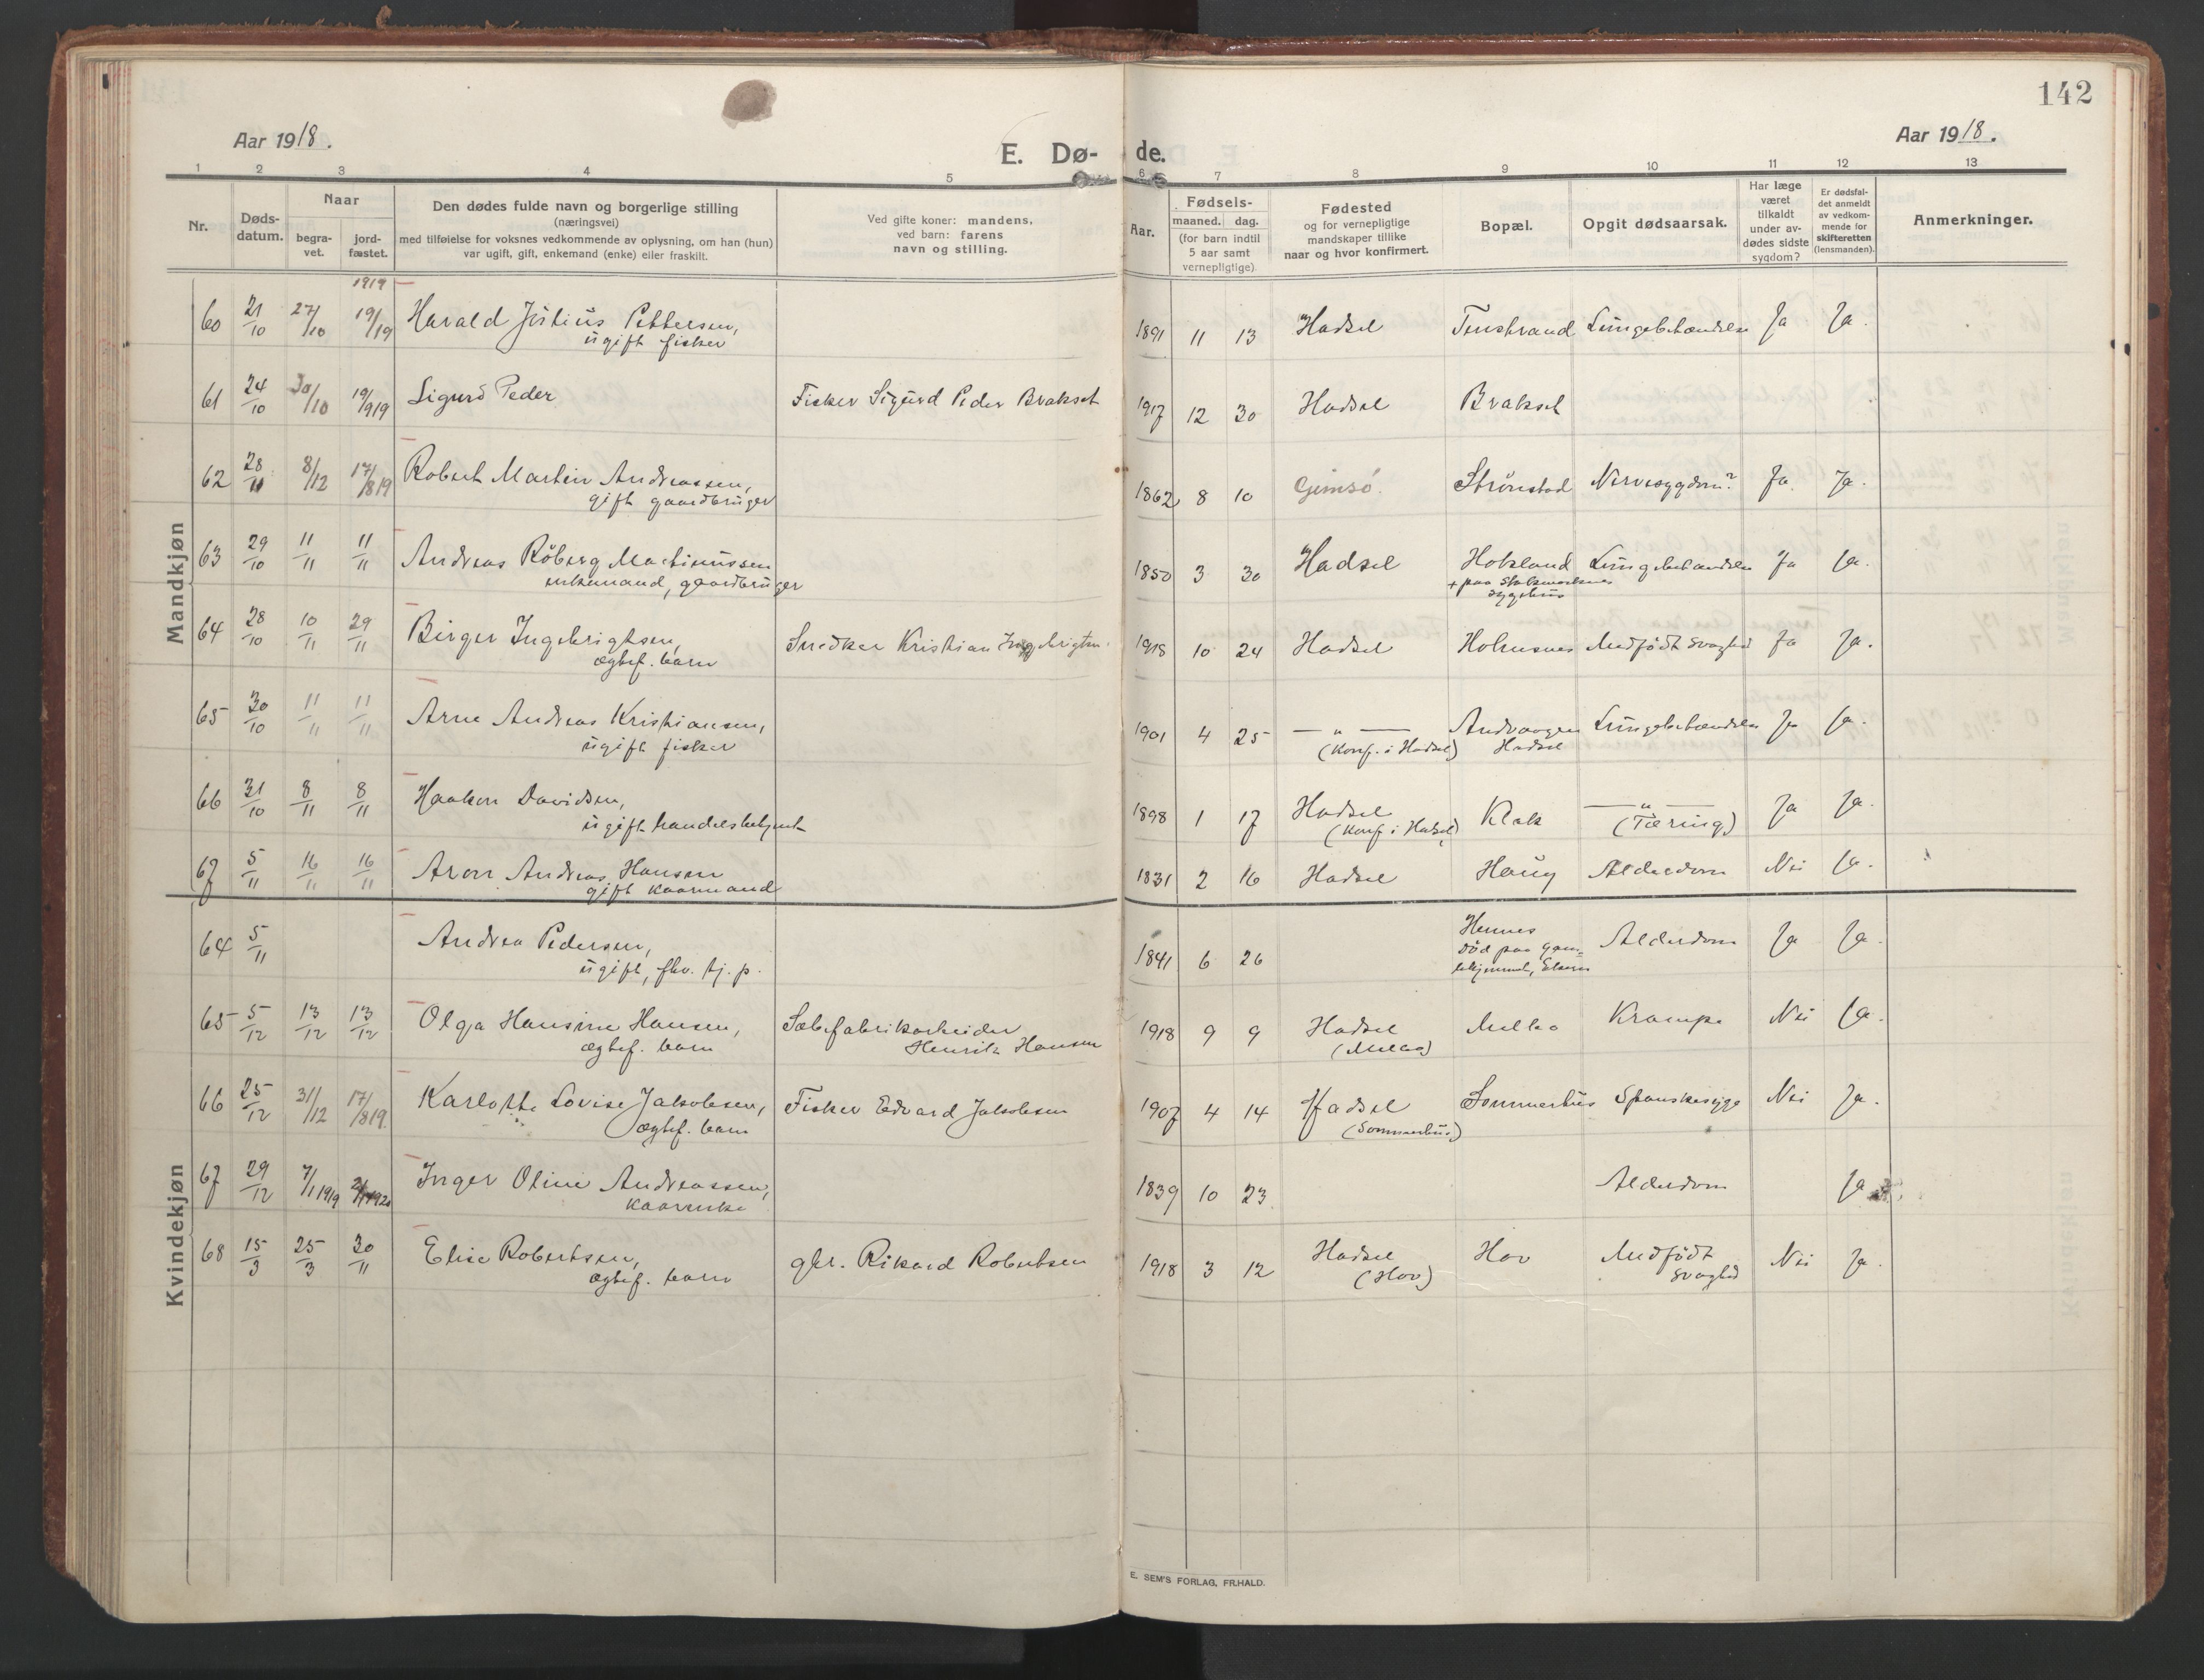 142
Aar 1918.
E. Dø-
de.
Aar 1918.
1 2 3 4 5 6 7 8 9 10 11 12 13
Nr.
Døds-
datum.
Naar
begra-
vet.
jord-
fæstet.
Den dødes fulde navn og borgerlige stilling
(næringsvei)
med tilføielse for voksnes vedkommende av oplysning, om han (hun)
var ugift, gift, enkemand (enke) eller fraskilt.
Ved gifte koner: mandens,
ved barn: farens
navn og stilling.
Aar.
Fødsels-
maaned. dag.
(for barn indtil
5 aar samt
vernepligtige)
Fødested
og for vernepligtige
mandskaper tillike
naar og hvor konfirmert.
Bopæl.
Opgit dødsaarsak.
Har læge
været
tilkaldt
under av-
dødes sidste
sygdom?
Er dødsfal-
det anmeldt
av vedkom-
mende for
skifteretten
(lensmanden).
Anmerkninger.
Mandkjøn
1919
60 21/10 27/10 19/19 Harald Justius Pettersen, 1891 11 13 Hadsel Tenstrand Lungebetændelse Ja Ja.
ugift fisker
61 24/10 30/10 19/919 Sigurd Peder Fisker Sigurd Peder Brakset 1917 12 30 Hadsel Brakset
62 28/11 8/12 17/819 Robert Martin Andreassen, 1862 8 10 Gimsö. Strönstad Nervesygdom? Ja. Ja.
gift gaardbruger
63 29/10 11/11 11/11 Andreas Röberg Martinussen 1850 3 30 Hadsel Hokland Lungebetændelse Ja Ja.
enkemand, gaardbruger + paa Stokmarknes
sygehus
64 28/10 10/11 29/11 Birger Ingebrigtsen, Snedker Kristian Ingebrigtsen 1918 10 24 Hadsel Holmsnes Medfödt svaghed Ja Ja.
ægtef. barn
65 30/10 11/11 11/11 Arne Andreas Kristiansen, 1901 4 25 — " — Andvaagen Lungebetændelse Ja Ja.
ugift fisker (Konf. i Hadsel) Hadsel
66 31/10 8/11 8/11 Haakon Davidsen, 1898 1 17 Hadsel Klak — " — Ja Ja.
ugift handelsbetjent (Konf i Hadsel) (Tæring)
67 5/11 16/11 16/11 Aron Andreas Hansen 1831 2 16 Hadsel Haug Alderdom Nei Ja.
gift kaarmand
Kvindekjøn
64 5/11 Andrea Pedersen, 1841 6 26 Hennes Alderdom Ja Ja.
ugift, fhv. tj. p. Död paa Gam-
lehjemmet,
65 5/12 13/12 13/12 Olga Hansine Hansen, Sæbefabrikarbeider 1918 9 9 Hadsel Melbo Krampe Nei Ja.
ægtef. barn Henrik Hansen
66 25/12 31/12 17/819. Karlotte Lovise Jakobsen, Fisker Edvard Jakobsen 1907 4 14 Hadsel Sommerhus Spanskesyge Nei Ja.
ægtef. barn (Sommerhus)
67 29/12 7/1 1919 Inger Oline Andreassen, 1839 10 23 Alderdom Ja
kaarenke
68 15/3 25/3 30/11 Elise Robertsen, gbr. Rikard Robertsen 1918 3 12 Hadsel Hov Medfödt Nei Ja.
ægtef. barn (Hov) svaghed
E. SEM'S FORLAG, FR.HALD.